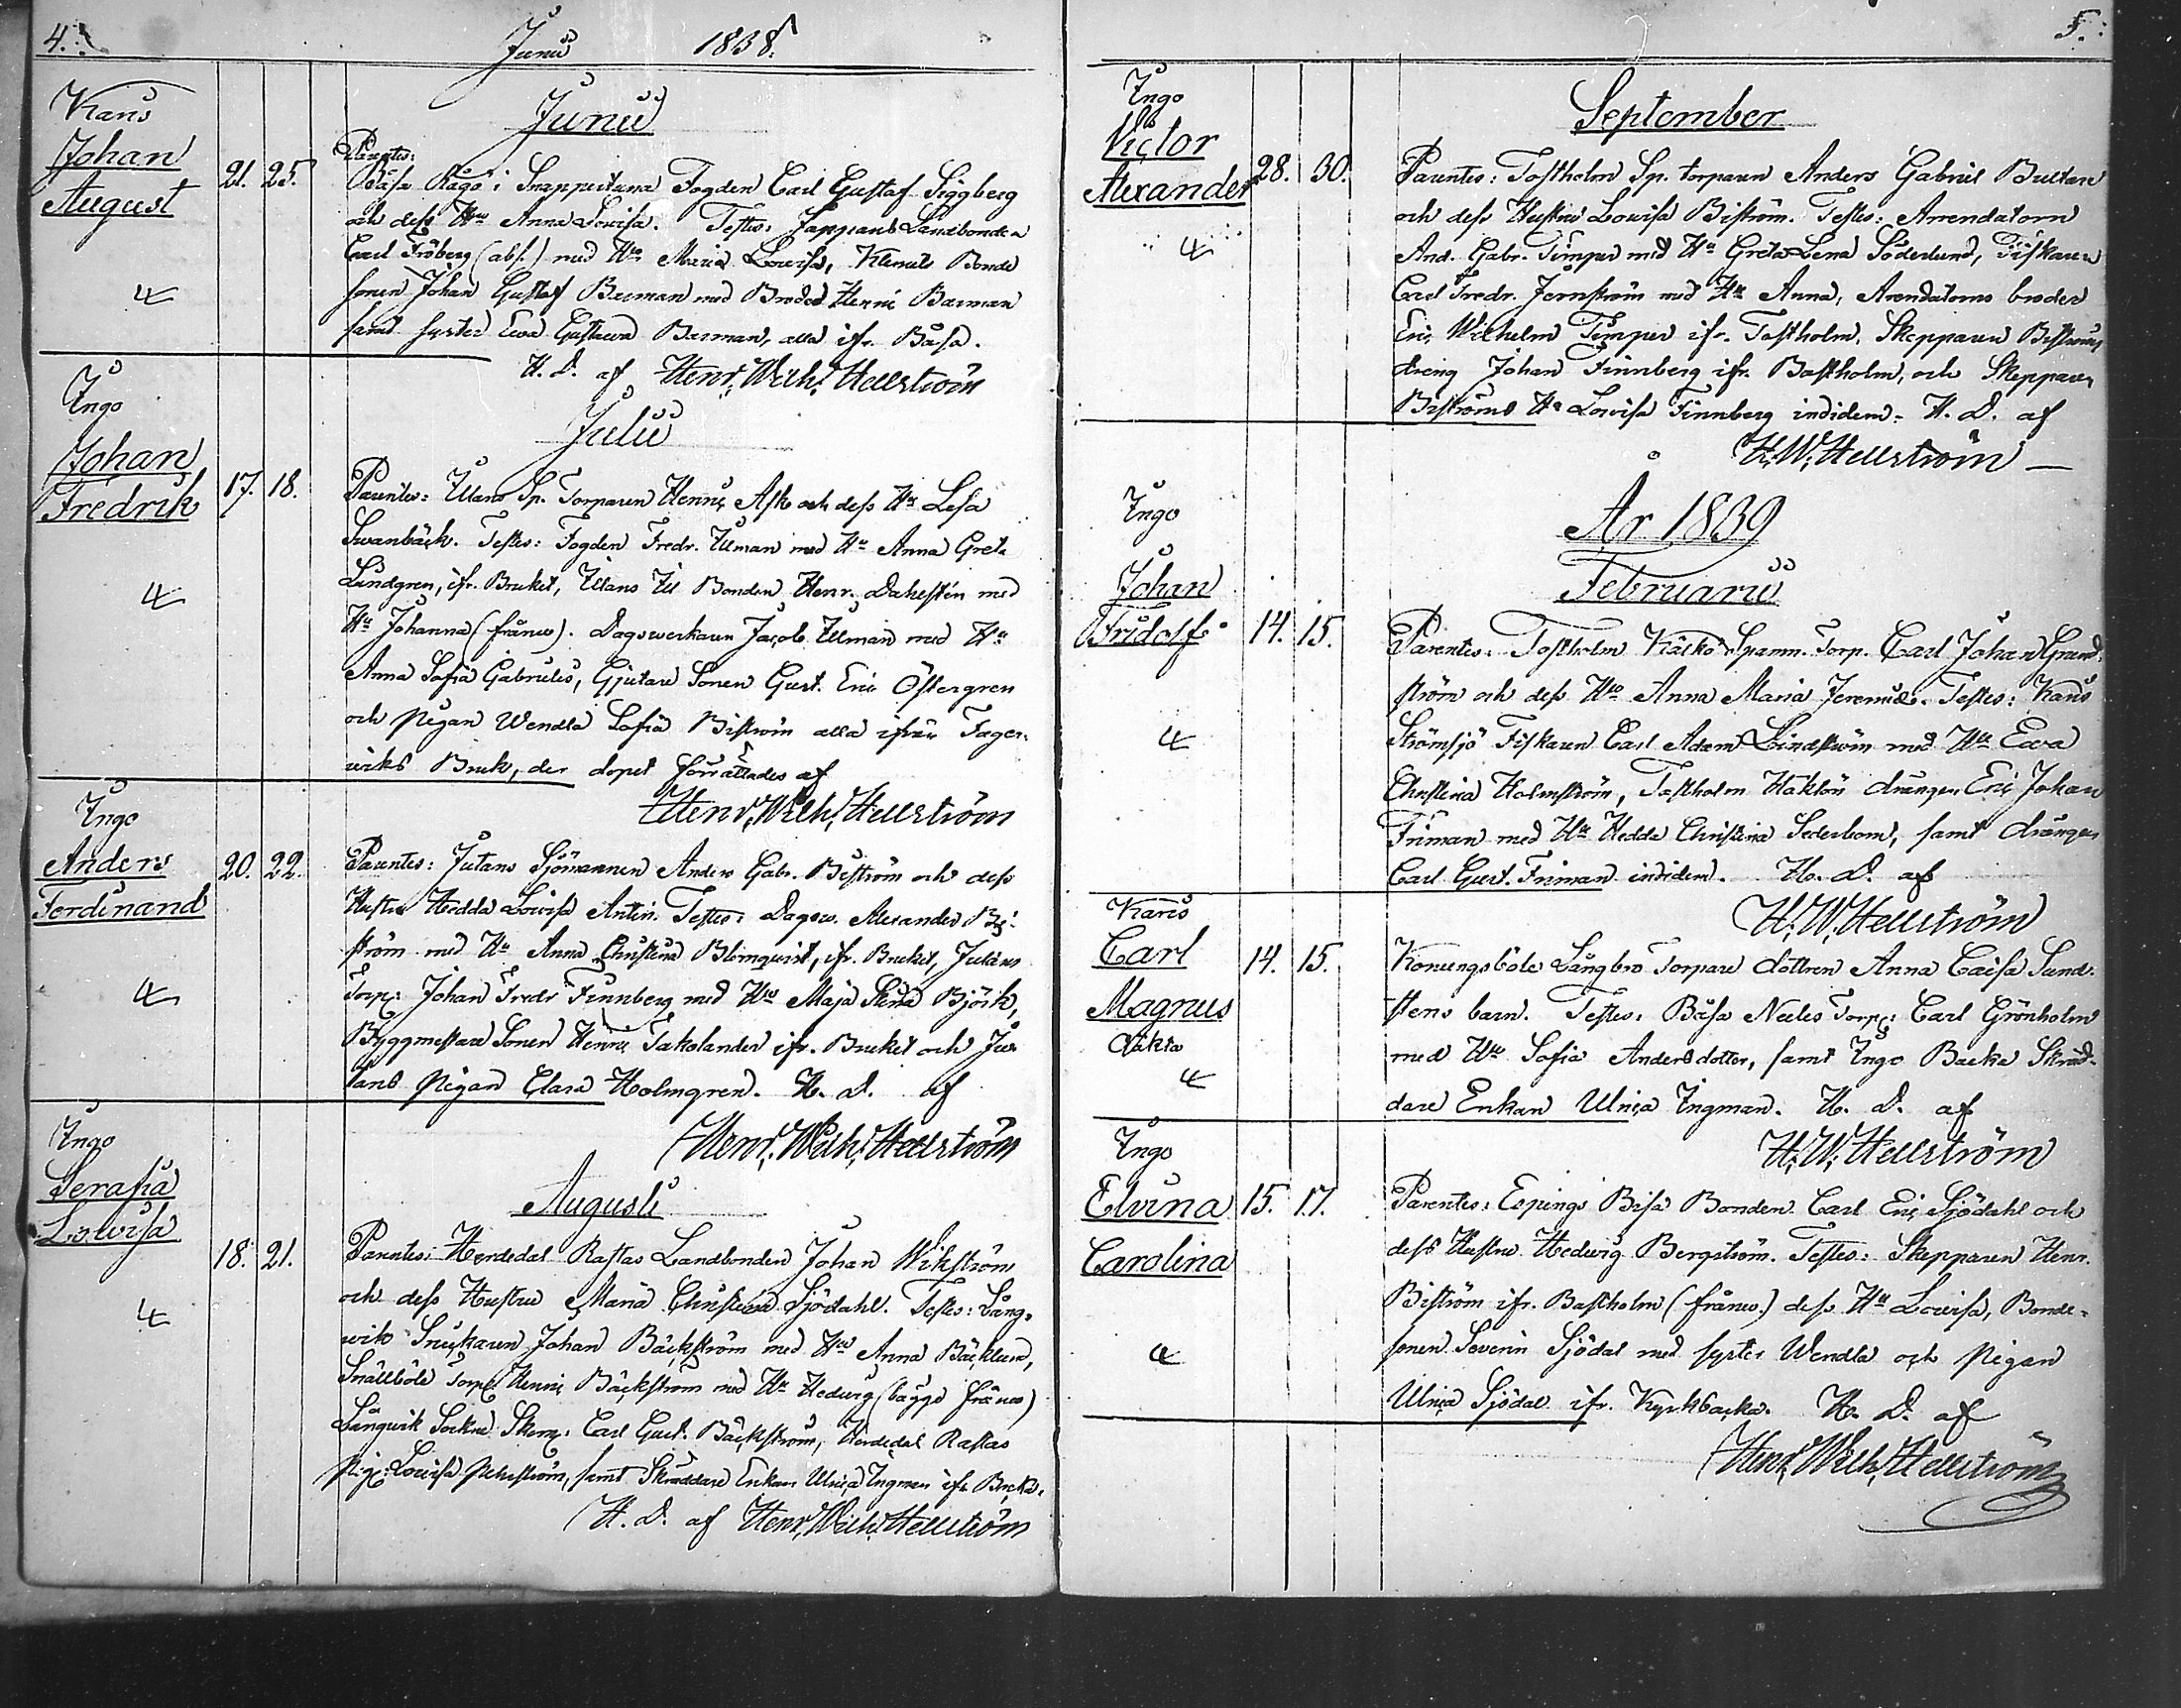 4.
Junii 1838.
Karis
Johan
August
21. 25.
Junii
Parentes:
Båsa Rågö i Snappertuna Fogden Carl Gustaf Siggberg
och dess Hu Anna Lovisa. Testes: Jappans Landbonden
Carl Fröberg (abs.) med Hu Maria Lovisa, Klemets Bonde
sonen Johan Gustaf Barman med Broder Henric Barman
samt syster Eva Gustava Barman, alla ifr. Båsa.
H. D. af Henr. Wilh. Hellström
Ingo
Johan
Fredrik
17. 18.
Julii
Parentes: Illans Sp. Torparen Henric Ask och dess Hu Lesa
Swanbäck. Testes: Fogden Fredr. Illman med Hu Anna Greta
Lundgren, ifr. Bruket, Illans Bonden Henr. Dahlstén med
Hu Johanna (frånv). Dagsverkaren Jacob Illman med Hu
Anna Sofia Gabriels, Gjutare Sonen Gust. Eric Östergren
och Pigan Wendla Sofia Biström alla ifrån Fager-
viks Bruk, der dopet förrättades af
Henr. Wilh. Hellström
Ingo
Anders
Ferdinand
20. 22.
Parentes: Jutans Sjömannen Anders Gabr. Biström och dess
Hustru Hedda Lovisa Antin. Testes: Dagsv. Alexander Bi-
ström med Hu Anna Christina Blomqvist, ifr. Bruket, Jutans
Torp: Johan Fredr Finnberg med Hu Maja Stina Björk,
Byggmestare Sonen Henric Takolander ifr. Bruket och Ju-
tans Pigan Clara Holmgren. H. D. af
Henr. Wilh. Hellström
Ingo
Serafia
Lovisa
18. 21.
Augusti
Parentes: Herdedal Rastas Landbonden Johan Wikström
och dess Hustru Maria Christina Sjödahl. Testes: Lång-
vik Snickaren Johan Bäckström med Hu Anna Bäcklund,
Snällböle Torp: Henric Bäckström med Hu Hedvig (bägge frånv)
Långvik Sockne Skom: Carl Gust. Bäckström, Herdedal Rastas
Pig: Lovisa Pehrström, samt Skräddare Enkan Ulrica Ingman ifr. Backa.
H. D. af Henr. Wilh. Hellström
5.
Ingo
Victor
Alexander
28. 30.
September
Parentes: Tostholm Sp. torparen Anders Gabriel Bultare
och dess Hustru Lovisa Biström. Testes: Arrendatorn
And. Gabr. Timper med Hu Greta Lena Söderlund, Fiskaren
Carl Fredr. Jernström med Hu Anna, Arendatorns broder
Eric Wilhelm Timper ifr. Tostholm. Skepparen Biströms
dreng Johan Finnberg ifr. Bastholm, och Skepparen
Biströms Hu Lovisa Finnberg indidem. H. D. af
H. W. Hellström
År 1839
Februarii
Ingo
Johan
Fridolf
14. 15.
Parentes: Tostholm Kälkö Spanm. Torp. Carl Johan Grand-
ström och dess Hu Anna Maria Jeremiæ. Testes: Karis
Strömsjö Fiskaren Carl Adam Lindström med Hu Eva
Christina Holmström, Tostholm Haklön drängen Eric Johan
Friman med Hu Hedda Christina Sederbom, samt drängen
Carl Gust. Friman indidem. H. D. af
H. W. Hellström
Karis
Carl
Magnus
oäkta
14. 15.
Konungsböle Långbro Torpare dottren Anna Caisa Sand-
stens barn. Testes: Båsa Neeles Torp: Carl Grönholm
med Hu Sofia Andersdotter, samt Ingo Backa Skräd-
dare Enkan Ulrica Ingman. H. D. af
H. W. Hellström
Ingo
Elvina
Carolina
15. 17.
Parentes: Espings Bisa Bonden Carl Eric Sjödahl och
dess Hustru Hedvig Bergström. Testes: Skepparen Henr.
Biström ifr. Bastholm (frånv.) dess Hu Lovisa, Bonde-
sonen Severin Sjödal med syster Wendla och Pigan
Ulrica Sjödal ifr. Kyrkbacka. H. D. af
Henr. Wilh. Hellström